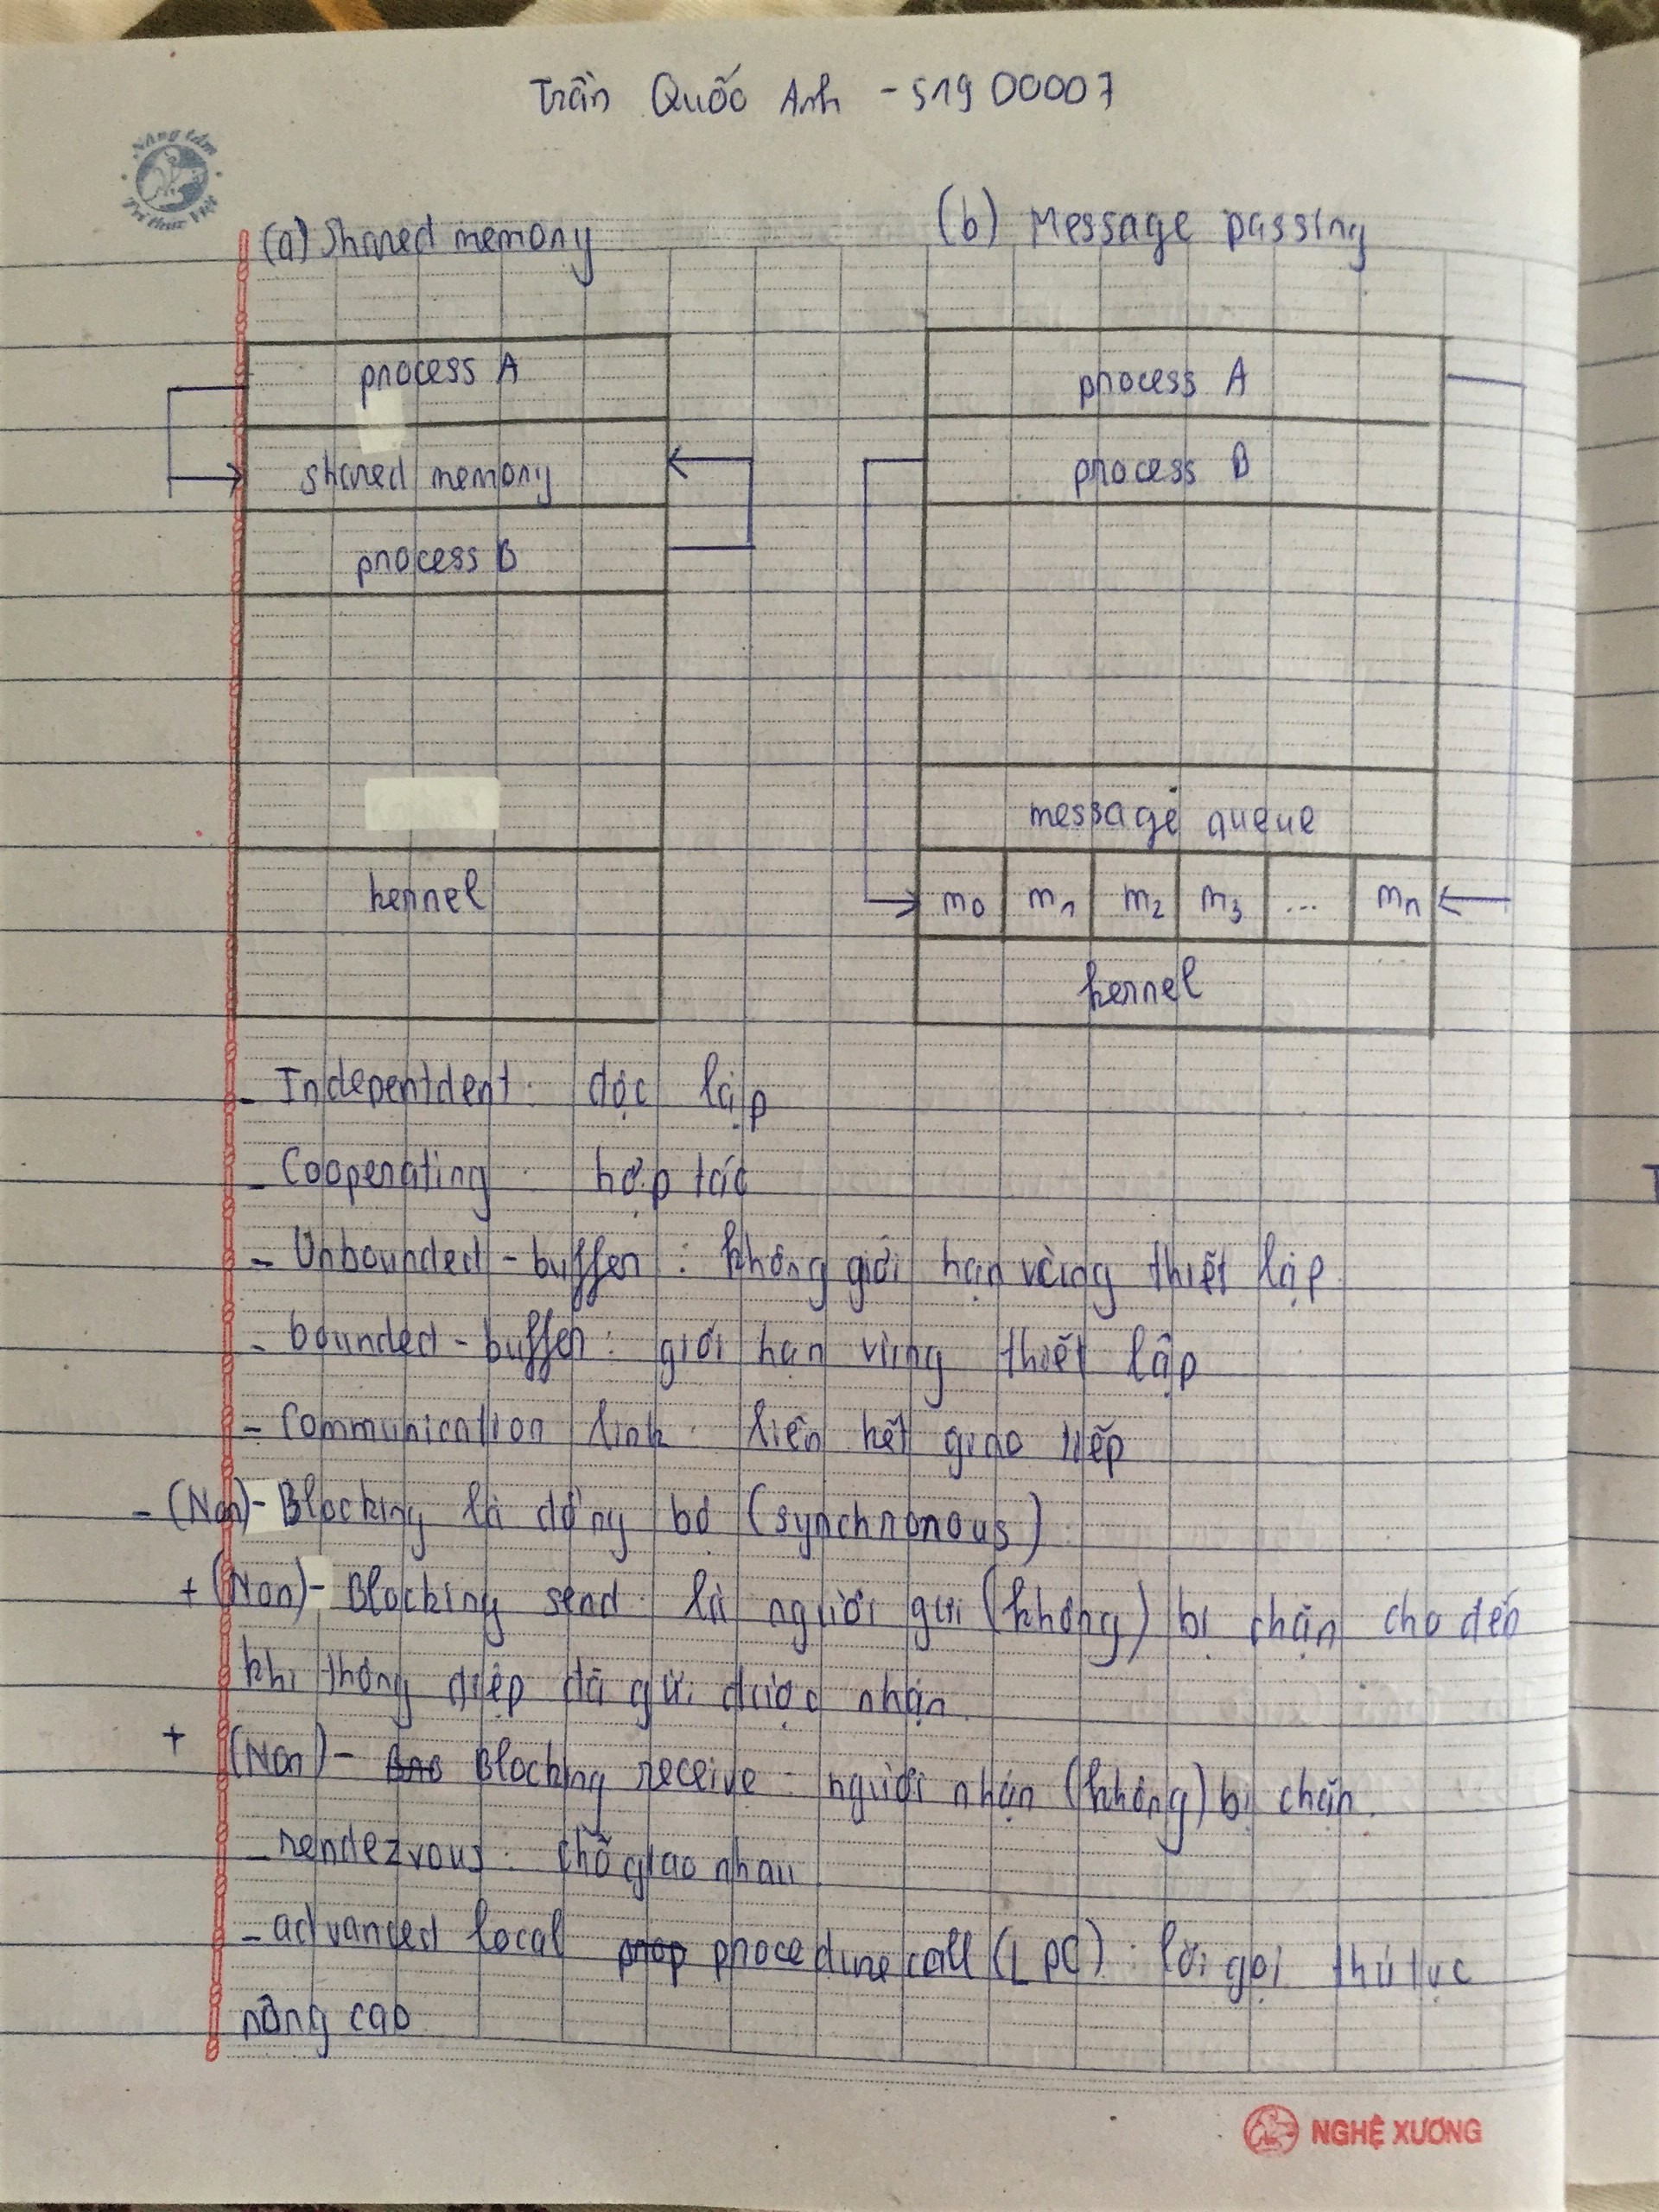 Trần Quốc Anh - 51900007
Nâng tầm
Tri thức Việt
(a) Shared memory
(b) Message passing
process A
shared memory
process B
kernel
process A
process B
message queue
m0 m1 m2 m3 ... mn
kernel
- Indepentdent: độc lập
- Cooperating: hợp tác
- Unbounded-buffer: không giới hạn vùng thiết lập
- bounded-buffer: giới hạn vùng thiết lập
- Communication link: liên kết giao tiếp
- (Non)-Blocking là đồng bộ (synchronous)
+ (Non)- Blocking send: là người gửi (không) bị chặn cho đến
khi thông điệp đã gửi được nhận.
+ (Non)- Blocking receive: người nhận (không) bị chặn.
- rendezvous: chỗ giao nhau
- advanced local prop procedure call (LPC): lời gọi thủ tục
nâng cao
NGHỆ XƯƠNG